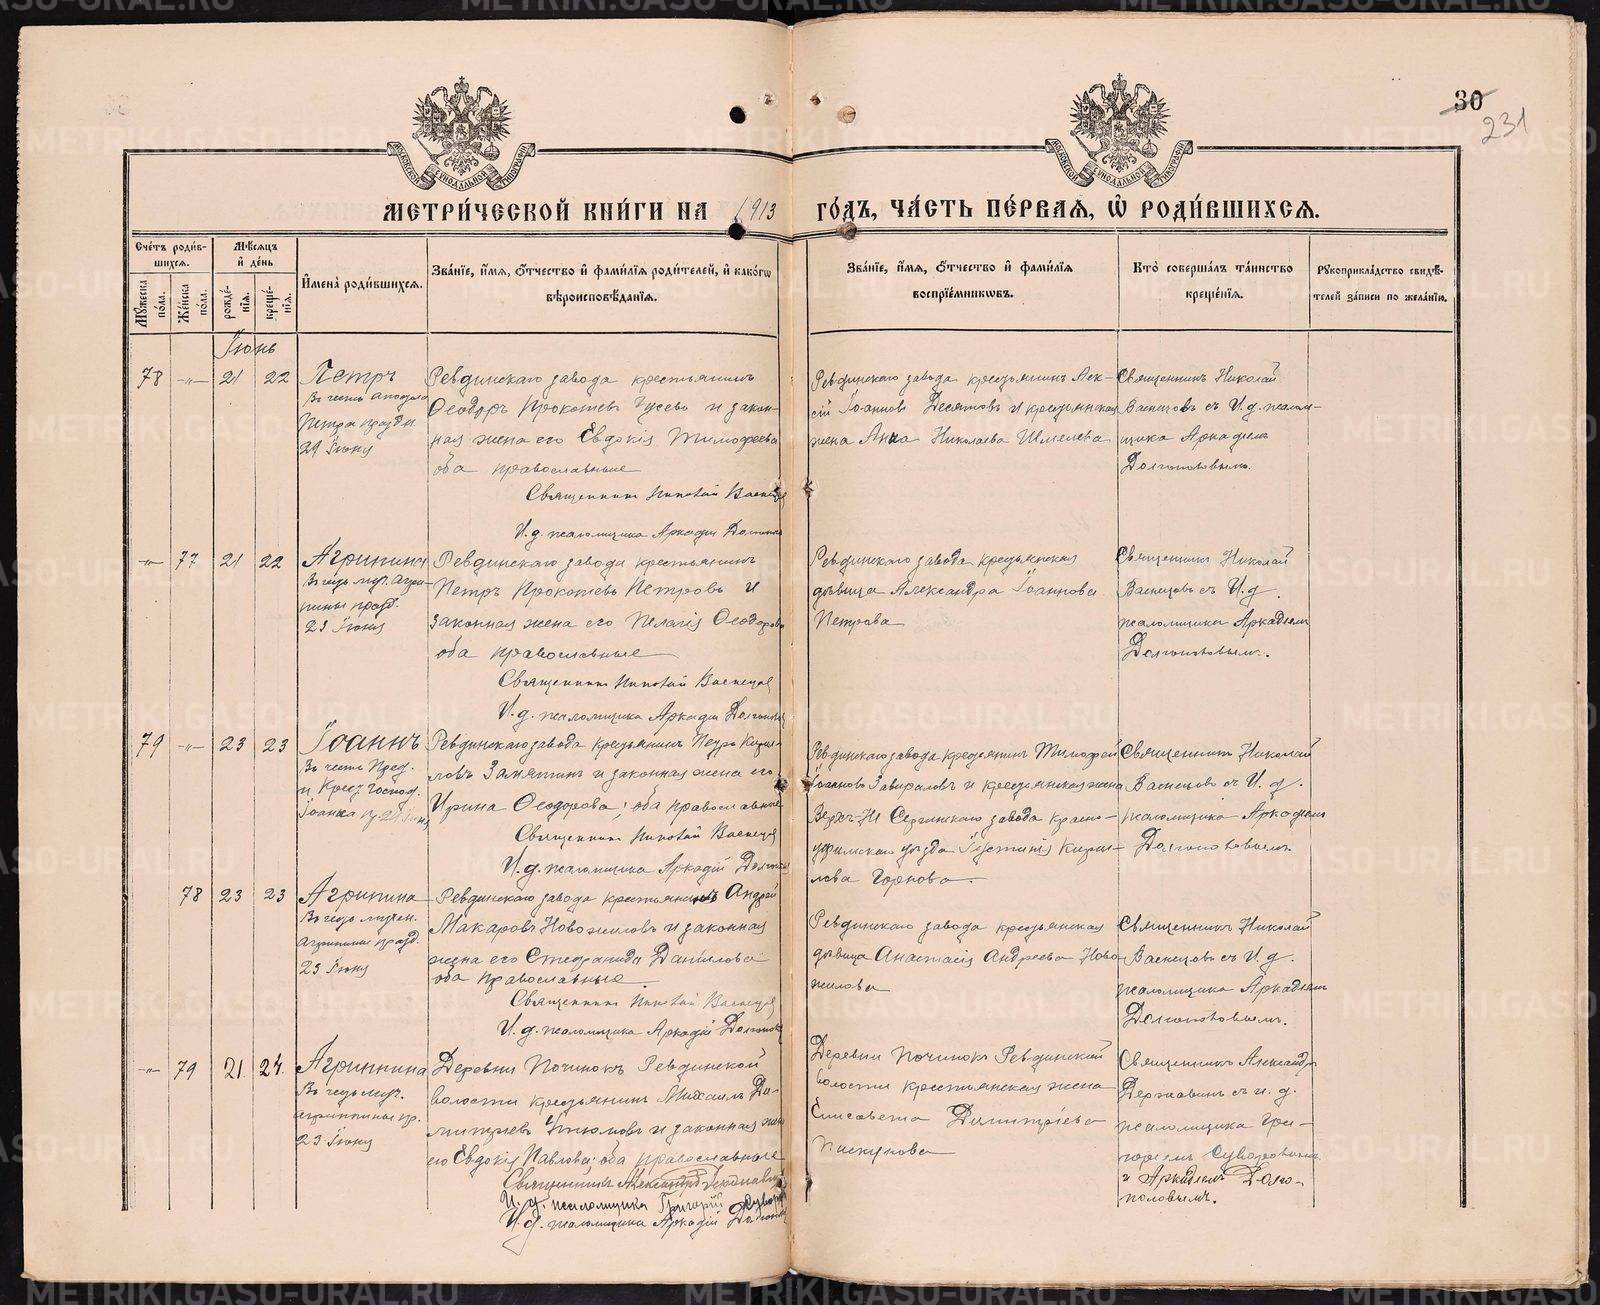 30
231
МОСКОВСКОЙ СѴНОДАЛЬНОЙ ТИПОГРАФІИ
МОСКОВСКОЙ СѴНОДАЛЬНОЙ ТИПОГРАФІИ
МЕТРИ́ЧЕСКОЙ КНИ́ГИ НА 1913 ГО́ДЪ, ЧА́СТЬ ПЕ́РВАЯ, Ѡ҆ РОДИ́ВШИХСЯ.
Сче́тъ роди́в-
шихся.
Мꙋ́жеска по́ла.
Же́нска по́ла.
Мѣ́сяцъ
и҆ де́нь
рожде́-
нїя.
креще́-
нїя.
И҆мена̀ роди́вшихся.
Зва́нїе, и҆́мя, ѻ҆́тчество и҆ фами́лїя роди́телей, и҆ како́гѡ
вѣроисповѣ́данїя.
Зва́нїе, и҆́мя, ѻ҆́тчество и҆ фами́лїя
воспрїе́мникѡвъ.
Кто̀ соверша́лъ та́инство
креще́нїя.
Рꙋкоприкла́дство свидѣ́-
телей за́писи по жела́нїю.
Іюнь
78 -"- 21 22 Петръ
Въ честь апостола
Петра праздн.
29 Іюня
Ревдинскаго завода крестьянинъ
Ѳеодоръ Прокопьевъ Гусевъ и закон-
ная жена его Евдокія Тимофеева
оба православные
Священникъ Николай Васнецов
И.д. псаломщика Аркадій
Ревдинскаго завода крестьянинъ Алек-
сій Іоанновъ Десятовъ и крестьянская
жена Анна Николаева Шмелева
Священникъ Николай
Васнецовъ съ И.д. псалом-
щика Аркадіемъ
Долгополовымъ.
-"- 77 21 22 Агрипина
Въ честь муч. Агри-
пины празд.
23 Іюня
Ревдинскаго завода крестьянинъ
Петръ Прокопьевъ Петровъ и
законная жена его Пелагія Ѳеодорова
оба православные
Священникъ Николай Васнецов
И.д. псаломщика Аркадій
Ревдинскаго завода крестьянская
дѣвица Александра Іоаннова
Петрова
Священникъ Николай
Васнецовъ съ И.д.
псаломщика Аркадіемъ
Долгополовымъ.
79 -"- 23 23 Іоаннъ
Въ честь Пред.
и Крест. Господ.
Іоанна пр. 24 Іюня
Ревдинскаго завода крестьянинъ Петръ Кирил-
ловъ Замятинъ и законная жена его
Ирина Ѳеодорова; оба православные
Священникъ Николай Васнецов
И.д. псаломщика Аркадій
Ревдинскаго завода крестьянинъ Тимофей
Іоанновъ Завираловъ и крестьянская жена
Верхъ-Н Сергинскаго завода Красно-
уфимскаго уѣзда Іустинія Кирил-
лова Горнова
Священникъ Николай
Васнецовъ съ И.д.
псаломщика Аркадіемъ
Долгополовымъ
78 23 23 Агрипина
Въ честь мучен.
Агрипины празд.
23 Іюня
Ревдинскаго завода крестьянинъ Андрей
Макаровъ Новожиловъ и законная
жена его Степанида Данілова
оба православные.
Священникъ Николай Васнецов
И.д. псаломщика Аркадій
Ревдинскаго завода крестьянская
дѣвица Анастасія Андреева Ново-
жилова
Священникъ Николай
Васнецовъ съ И.д.
псаломщика Аркадіемъ
Долгополовымъ.
-"- 79 21. 24. Агриппина
Въ честь муч.
Агриппины пр.
23 Іюня
Деревни Починокъ Ревдинской
волости крестьянинъ Михаилъ Ди-
митріевъ и законная жена
его Евдокія Павлова; оба православные
Священникъ Александръ Державинъ
И.д. псаломщика Григорій
И.д. псаломщика Аркадій
Деревни Починокъ Ревдинской
волости крестьянская жена
Елисавета Димитріева
Пискунова
Священникъ Александръ
Державинъ съ и.д.
псаломщика Гри-
горіемъ Суворовымъ
и Аркадіемъ Долго-
половымъ.
METRIKI.GASO-URAL.RU